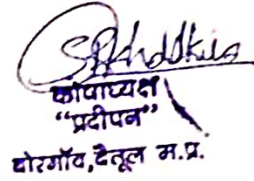 कोषाध्यक्ष
“प्रदीपन”
घोरगॉव, बैतूल म.प्र.